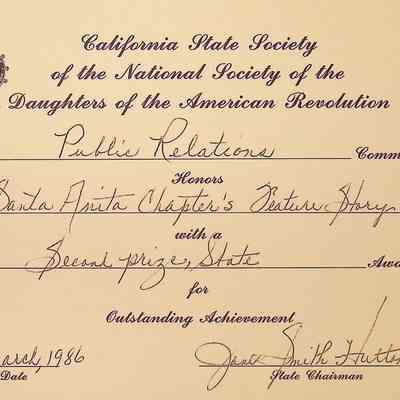 California State Society
of the National Society of the
Daughters of the American Revolution
Public Relations Comm
Honors
Santa Anita Chapter's Feature Story
with a
Second prize, State Awa
for
Outstanding Achievement
arch, 1986 Jane Smith Hutton
Date State Chairman